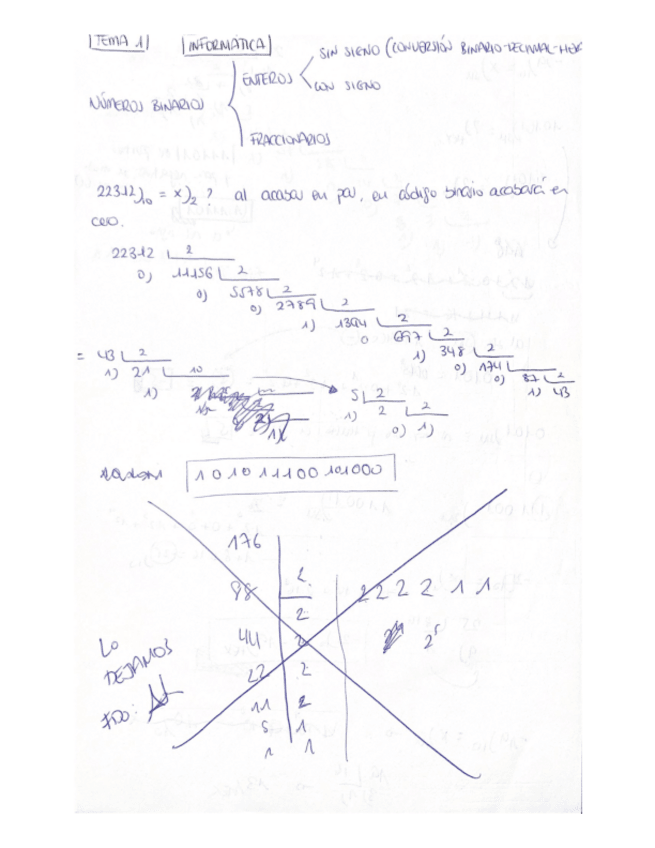 TEMA 1 INFORMÁTICA
SIN SIGNO (CONVERSIÓN BINARIO-DECIMAL-HEX
ENTEROS
CON SIGNO
NÚMEROS BINARIOS
FRACCIONARIOS
22312)10 = x)2 ? al acabar en par, en código binario acabará en
cero.
22312 2
0) 11156 2
0) 5578 2
0) 2789 2
1) 1394 2
0 697 2
1) 348 2
0) 174 2
0) 87 2
1) 43
= 43 2
1) 21 10
1)
5 2
1) 2 2
0) 1)
1010 11100 101000
176
88 2 2 2 2 2 1 1
2
44 2 2
22 2
11 2
5 1
1 1
LO
DEJAMOS
FDO: